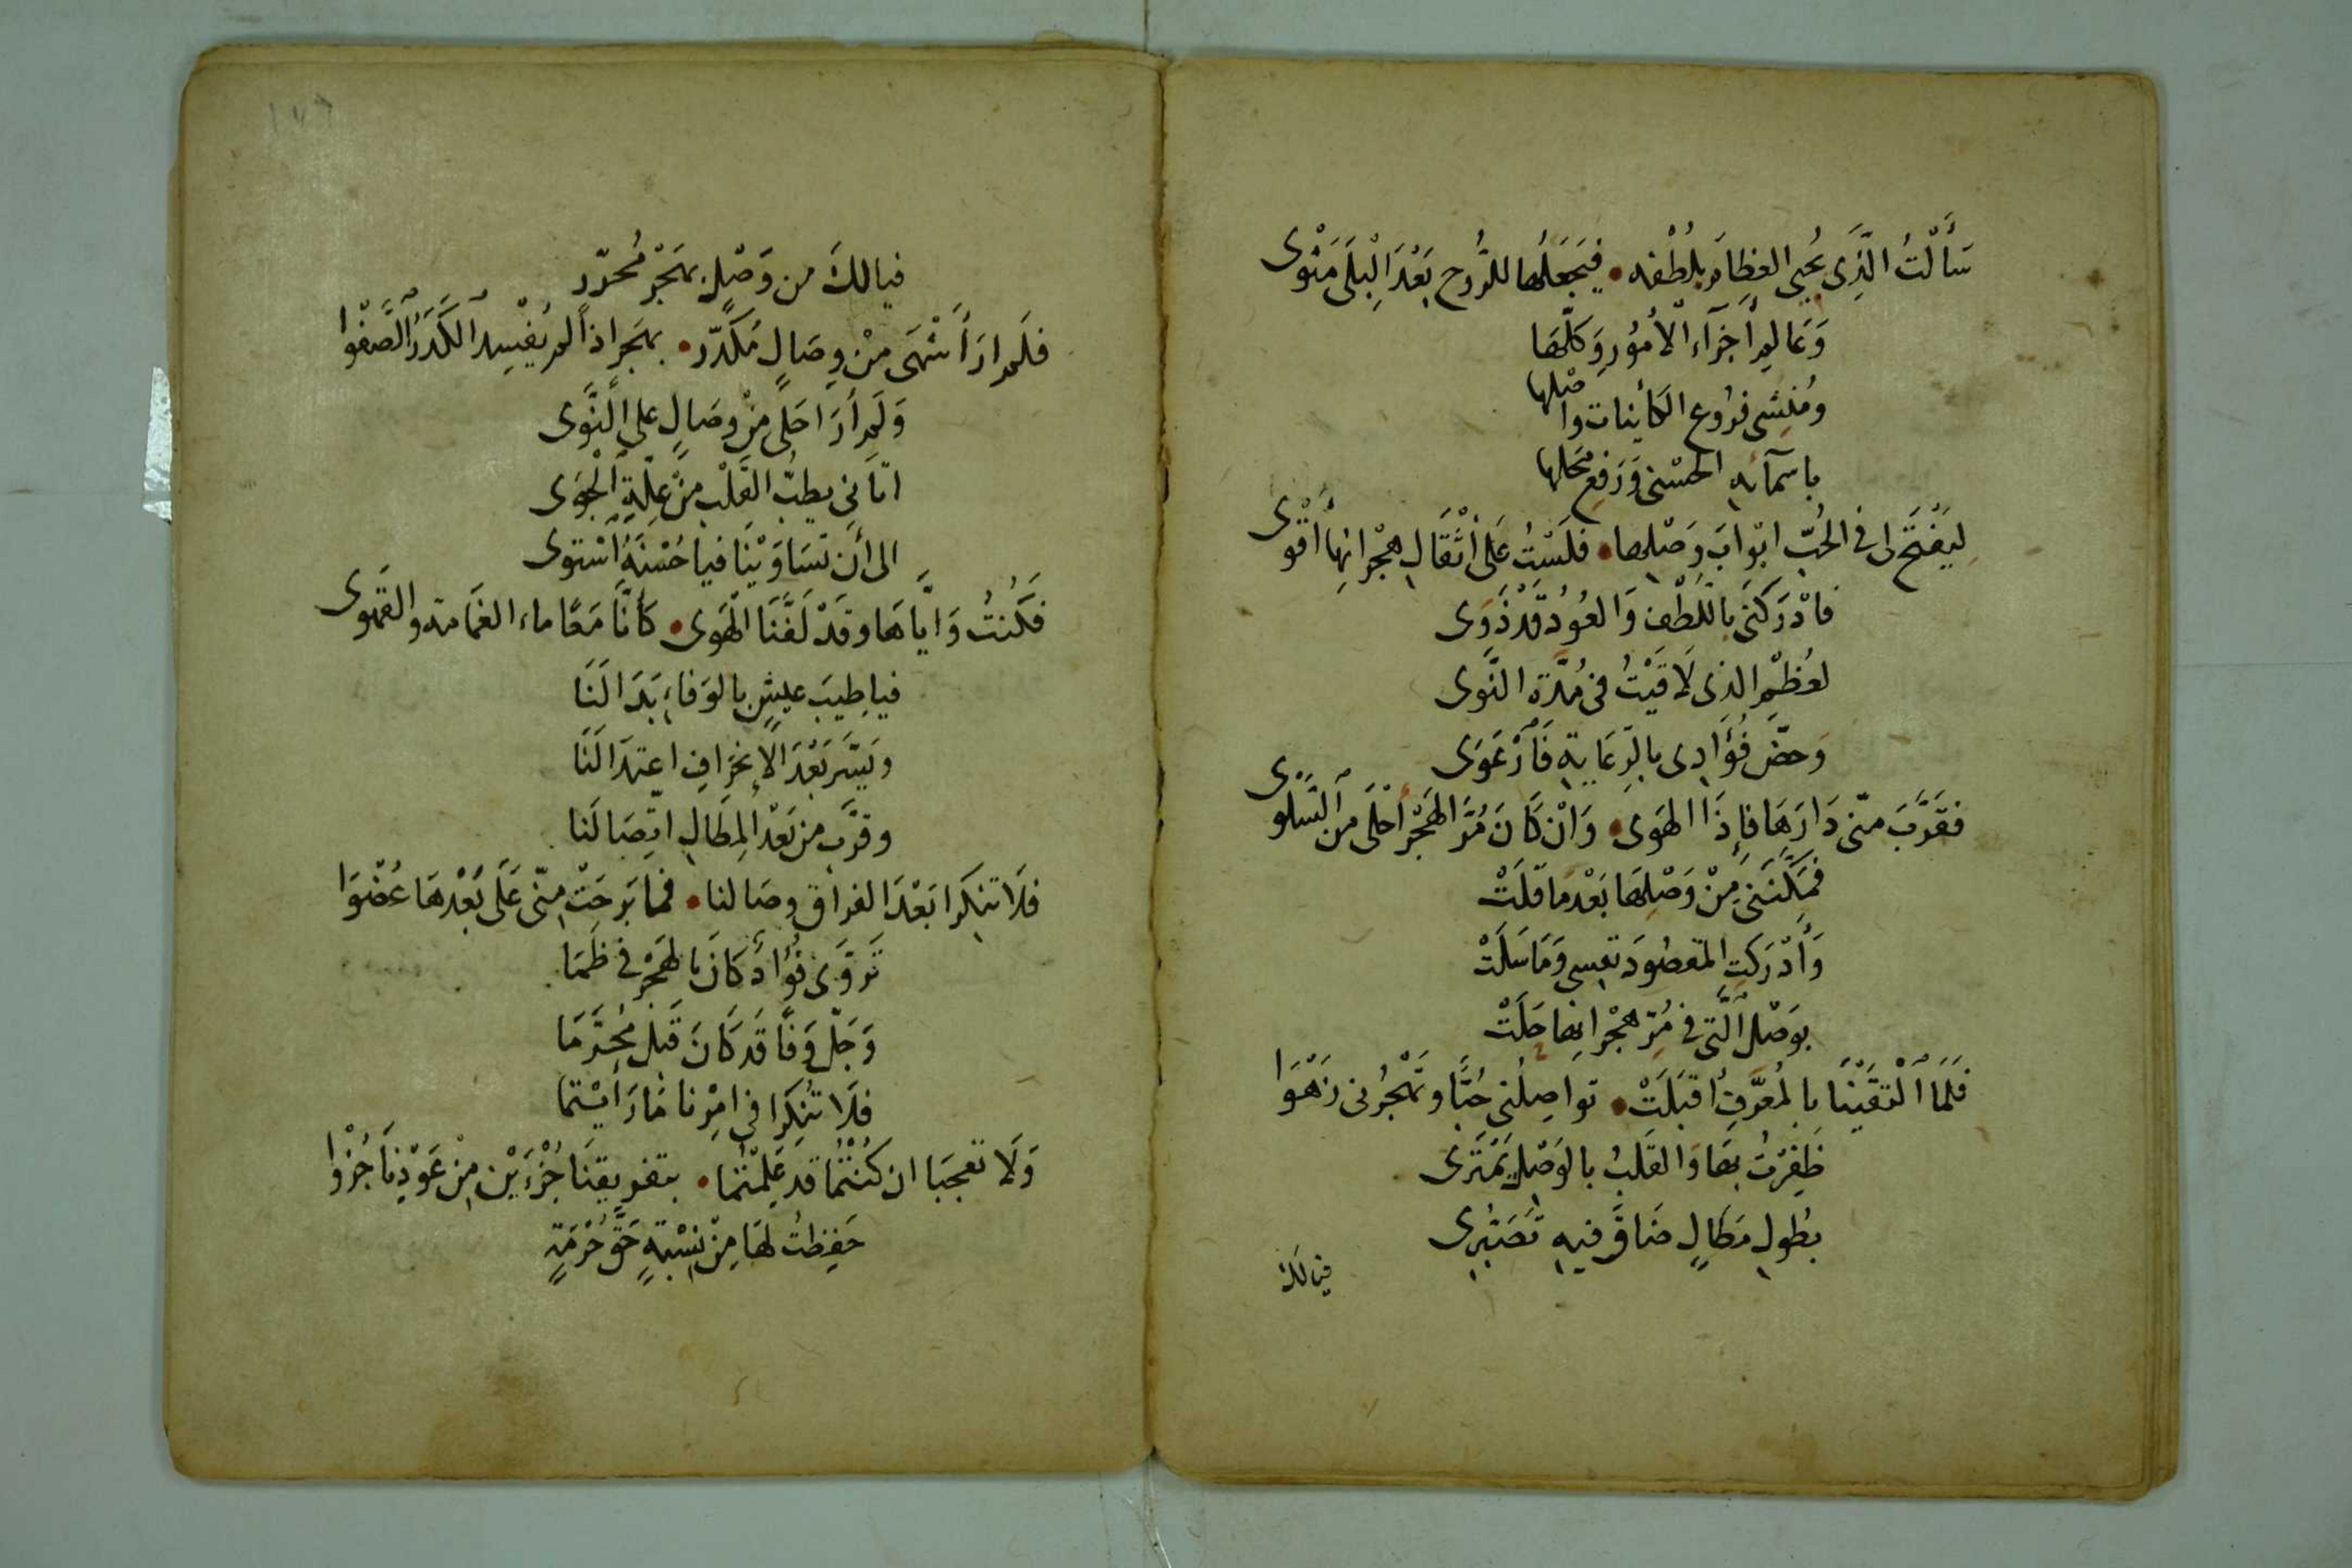 سَأَلْتُ الَّذِى يُحْيِى العِظَامَ بِلُطْفِهِ • فَيَجْعَلُهَا لِلرُّوحِ بَعْدَ الْبِلَى مَثْوَى
وَعَالِم أَجْزَآءِ الْأُمُورِ وَكُلِّهَا
وَمُنْشِى فُرُوعِ الكَائِنَاتِ وَاصْلِهَا
بِاسمآئِهِ الحسْنى وَرَفعِ مَحَلِّهَا
لِيَفْتَحَ لِى فِى الحُبِّ ابْوَابَ وَصْلِهَا • فَلَسْتُ عَلَى أَثْقَالِ هِجْرَانِهَا أَقْوَى
فَادْرَكَنِى بِاللُّطْفِ وَالعُودُ قَدْ ذَوَى
لِعُظْمِ الذى لَاقَيْتُ فِى مُدَّةِ النَّوَى
وَحضَّ فُؤَادِى بِالرِّعَايَةِ فَارْعَوَى
فَقَرَّبَ مِنّى دَارَهَا فَإِذَا الهَوَى • وَانْ كَانَ مُرَّ الهَجْرِ أَحْلَى مِنَ السَّلْوَى
فَمَكَّنَنِى مِنْ وَصْلِهَا بَعْدَ مَا قَلَتْ
وَأَدْرَكَتِ المَقصُودَ نفسِى وَمَا سَلَتْ
بِوَصْلِ الَّتِى فِى مُرِّ هِجْرَانِهَا حَلَتْ
فَلَمَّا الْتَقَيْنَا بِالمُعَرَّفِ اقْبَلَتْ • تواصِلُنِى حُبًّا وَتَهْجُرُنِى زَهْوَا
ظَفِرْتُ بِهَا وَالقَلْبُ بِالوَصْلِ يَمْتَرِى
بِطُولِ مَطَالٍ ضَاقَ فِيهِ تَصَبُّرِى
فيالك
فيالكَ من وَصْلٍ بِهَجْرٍ مُحَرَّرِ
فَلَم ارَ أَشْهَى مِنْ وِصَالٍ مُكَدَّرِ • بِهَجرٍ اذا لم يُفْسِدِ الكَدَرُ الصَّفْوَا
وَلَم أَرَ احْلَى مِنْ وِصَالٍ على النَّوَى
اتَانِى بِطِبِّ القَلْبِ مِنْ عِلَّةِ الْجَوَى
الى أَن تَسَاوَيْنَا فيا حُسْنَهُ اسْتوى
فَكُنتُ وَايَّاهَا وَقَدْ لَفَّنَا الْهَوَى • كَأَنَّا مَعًا ماء الغَمَامة والقَهْوى
فيا طِيبَ عيشٍ بالوَفَاءِ بَدَا لَنَا
وَيَسَّرَ بَعْدَ الإنْحِرَافِ اعتِدَالَنَا
وَقرَّب من بَعْدِ المِطَالِ اتِّصَالَنا
فَلَا تُنْكِرَا بَعْدَ الفراق وِصَالنا • فَمَا بَرِحَتْ مِنّى عَلَى بُعْدِهَا عُضْوَا
تَرَوَّى فُؤَادٌ كَانَ بِالهَجْرِ فى ظَمَا
وَحَلَّ وَفًا قَد كَانَ قَبْل مُحَرَّمَا
فَلَا تُنْكِرَا فى امْرِنا مَا رَأَيْتُمَا
وَلَا تَعجَبَا ان كُنْتُمَا قَد عَلِمْتُمَا • بِتَفرِيقِنَا جُزْءَيْنِ مِنْ عَوْدِنَا جُزْوا
حَفِظتُ لهَا مِنْ نِسْبَةٍ حَقَّ حُرْمَةٍ